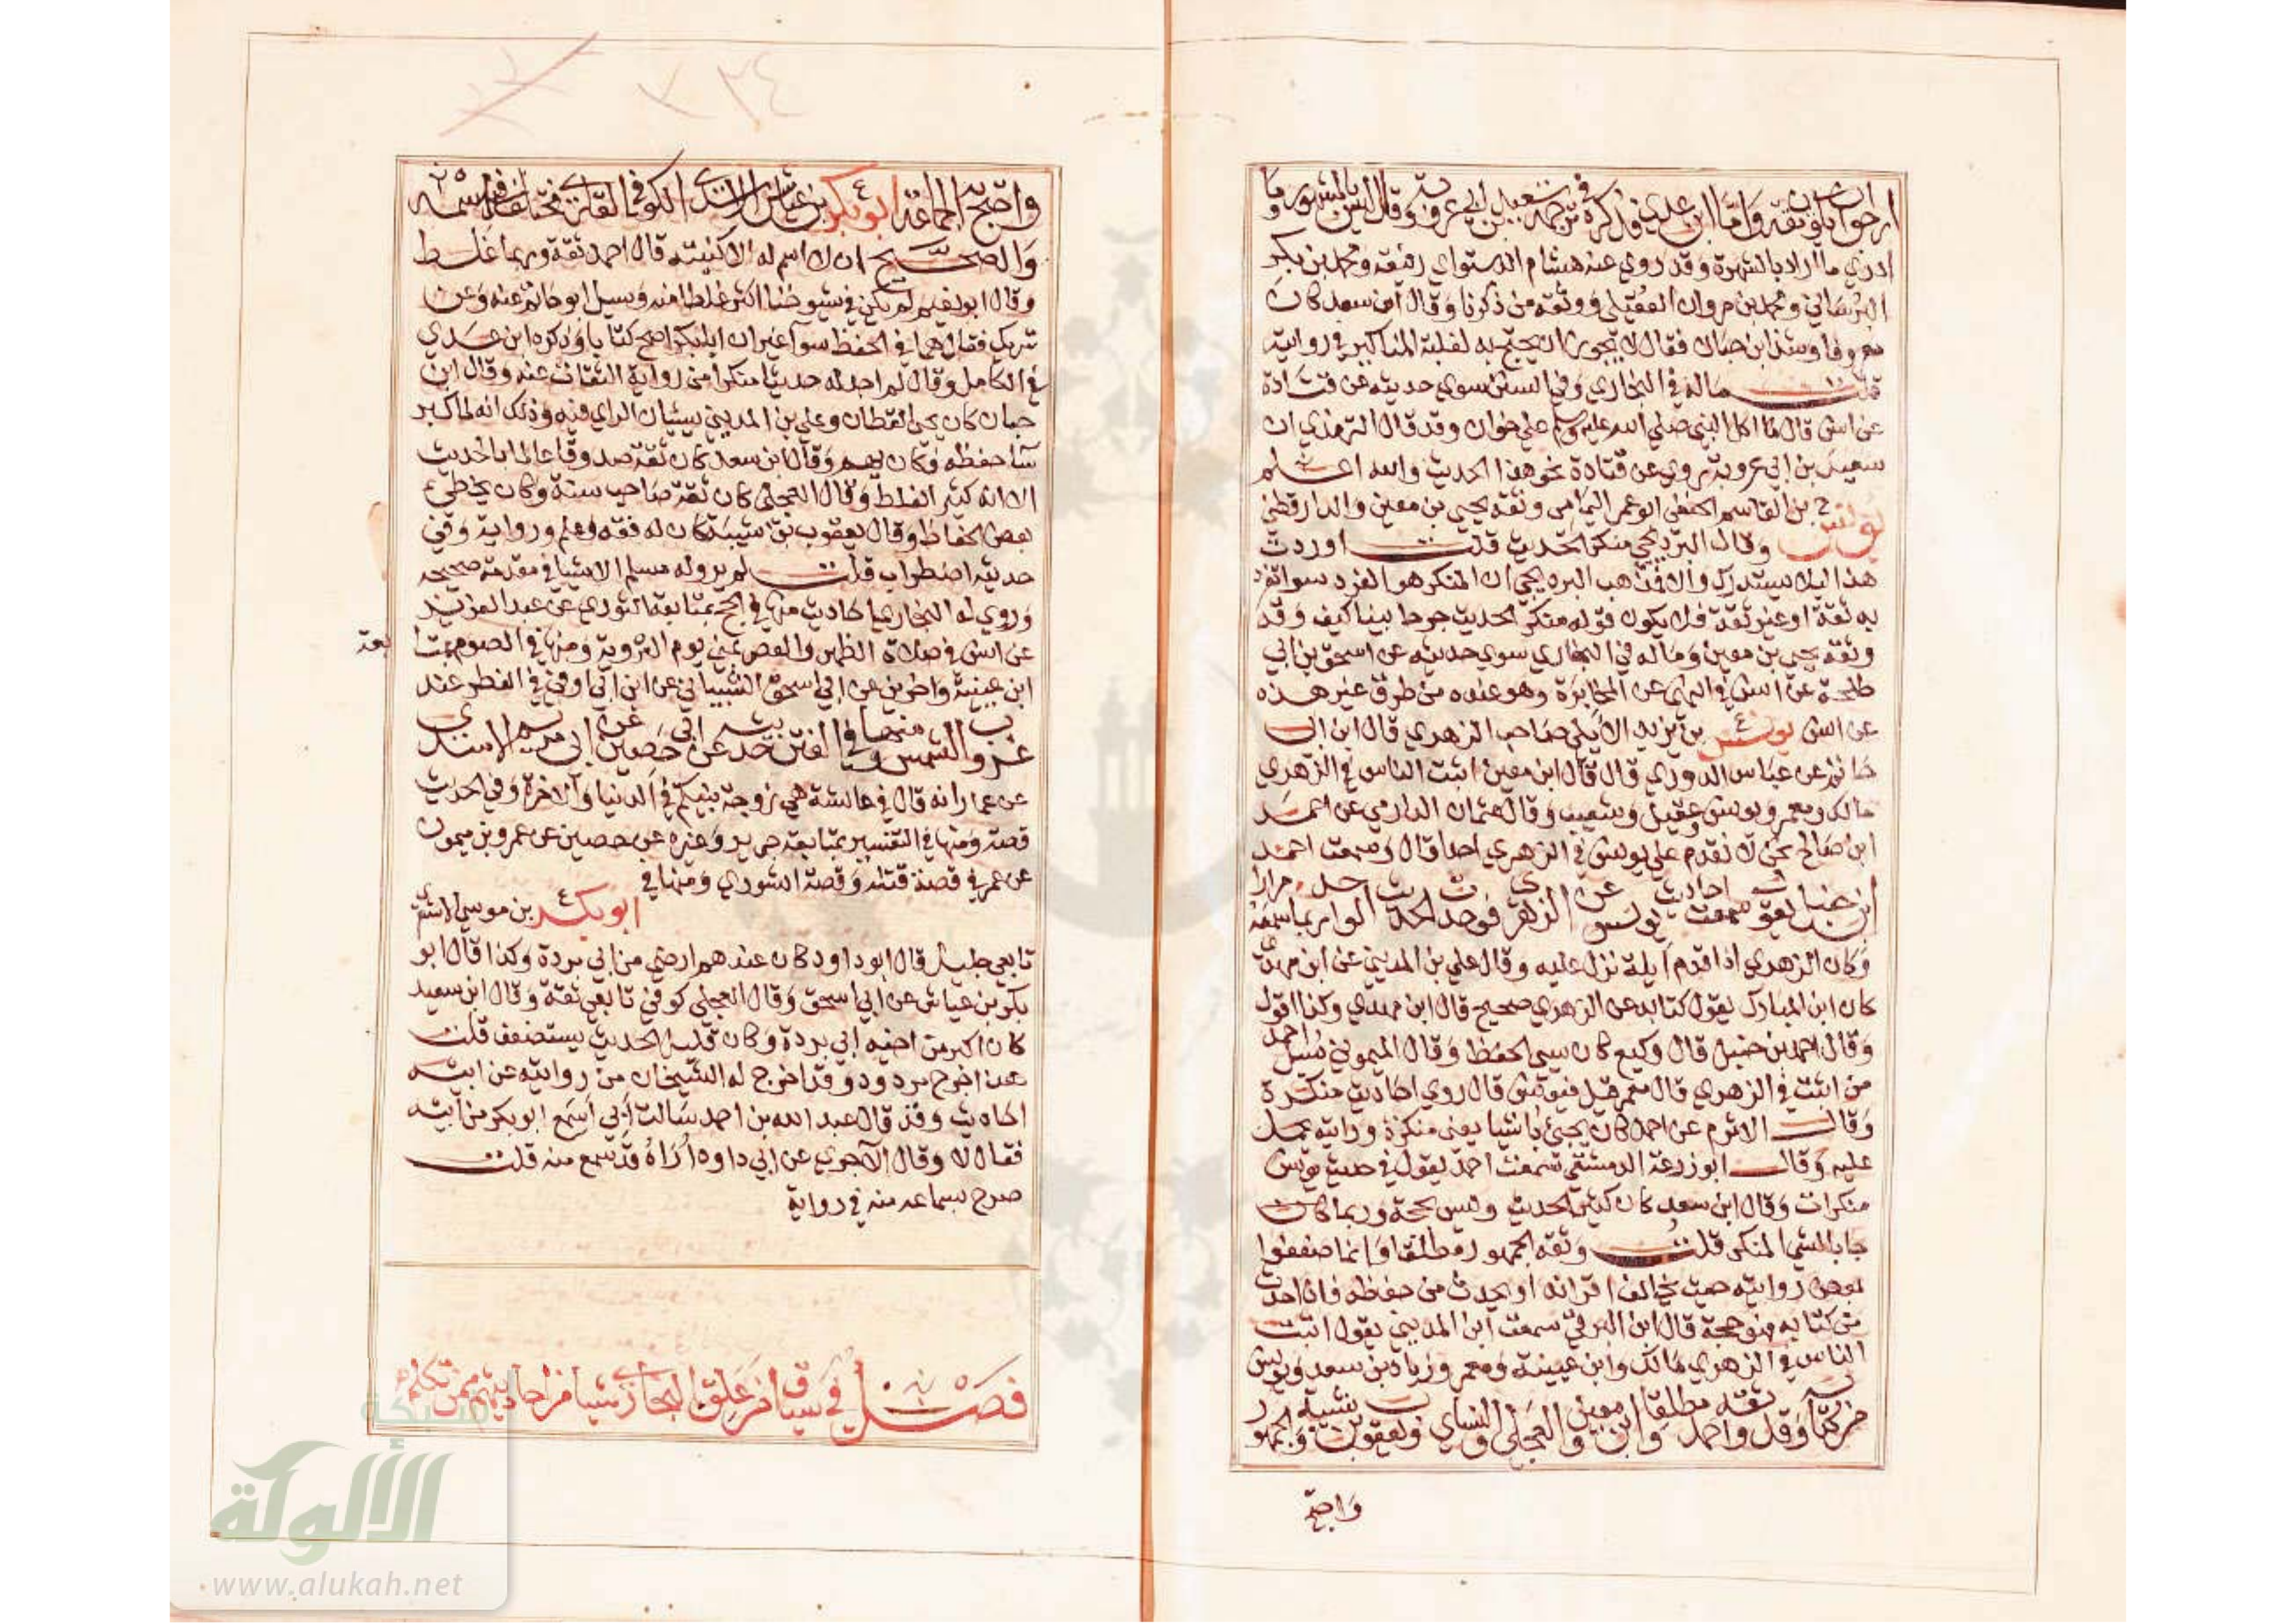 ارجوا ان يكون ثقة واما ابن عدي فذكره في ترجمة سعيد بن ابي عروبة وقال ليس بالمشهور وما
ادري ما اراد بالشهرة وقد روي عنه هشام الدستواي رفيقه ومحمد بن بكر
البرساني ومحمد بن مروان العقيلي ووثقه من ذكرنا وقال ابن سعد كان
معروفا وشذ ابن حبان فقال لا يجوز ان يحتج به لغلبة المناكير في روايته
قلت ماله في البخاري وفي السنن سوي حديثه عن قتادة
عن انس قال ما اكل النبي صلي الله عليه وسلم علي خوان وقد قال الترمذي ان
سعيد بن ابي عروبة روي عن قتادة نحو هذا الحديث والله اعلم
يونس بن القاسم الحنفي ابو عمر اليمامي وثقه يحيي بن معين والدارقطني
وقال البرديجي منكر الحديث قلت اوردت
هذا ليلا يستدرك والا فمذهب البرديجي ان المنكر هو الفرد سوا تفرد
به ثقة او غير ثقة فلا يكون قوله منكر الحديث جرحا بينا كيف وقد
وثقه يحيي بن معين وماله في البخاري سوي حديثه عن اسحق بن ابي
طلحة عن انس في النهي عن المخابرة وهو عنده من طرق غير هذه
عن انس يونس بن يزيد الايلي صاحب الزهري قال ابن ابي
حاتم عن عباس الدوري قال قال ابن معين اثبت الناس في الزهري
مالك ومعمر ويونس وعقيل وشعيب وقال عثمان الدارمي عن احمد
ابن صالح نحن لا نقدم علي يونس في الزهري احدا قال وسمعت احمد
ابن حنبل يقول سمعت احاديث يونس عن الزهري فوجدت الحديث الواحد ربما سمعه مرارا
وكان الزهري اذا قدم ايلة نزل عليه وقال علي بن المديني عن ابن مهدي
كان ابن المبارك يقول كتابه عن الزهري صحيح قال ابن مهدي وكذا اقول
وقال احمد بن حنبل قال وكيع كان سيي الحفظ وقال الميموني سيل احمد
من اثبت في الزهري قال معمر قيل فيونس قال روي احاديث منكرة
وقال الاثرم عن احمد كان يجيئ باشيا يعني منكرة ورايته يحمل
عليه وقال ابو زرعة الدمشقي سمعت احمد يقول في حديث يونس
منكرات وقال ابن سعد كان كثير الحديث وليس بحجة وربما كان
جا بالشي المنكر قلت وثقه الجمهور مطلقا وانما ضعفوا
بعض روايته حيث يخالف اقرانه او يحدث من حفظه فاذا حدث
من كتابه فهو حجة قال ابن البرقي سمعت ابن المديني يقول اثبت
الناس في الزهري مالك وابن عيينة ومعمر وزياد بن سعد ويونس
من كتابه وقد وثقه احمد مطلقا وابن معين والعجلي والنساي ويعقوب بن شيبة والجمهور
واحتج
واحتج به الجماعة ابو بكر بن عياش الاسدي الكوفي القاري مختلف في اسمه
والصحيح ان لا اسم له الا كنيته قال احمد ثقة وربما غلط
وقال ابو نعيم لم يكن في شيوخنا اكثر غلطا منه وسيل ابو حاتم عنه وعن
شريك فقال هما في الحفظ سوآ غير ان ابا بكر اصح كتابا وذكره ابن عدي
في الكامل وقال لم اجد له حديثا منكرا من رواية الثقات عنه وقال ابن
حبان كان يحيي القطان وعلي بن المديني يسيئان الراي فيه وذلك انه لما كبر
سآ حفظه فكان يهم وقال ابن سعد كان ثقة صدوقا عالما بالحديث
الا انه كثير الغلط وقال العجلي كان ثقة صاحب سنة وكان يخطئ
بعض الخطا وقال يعقوب بن شيبة كان له فقه وعلم ورواية وفي
حديثه اضطراب قلت لم يرو له مسلم الا شيا في مقدمة صحيحه
وروي له البخاري احاديث منها في الحج بمتابعة الثوري عن عبد العزيز
عن انس في صلاة الظهر والعصر بمني يوم التروية ومنها في الصوم بمتا
بعة
ابن عيينة واخرين عن ابي اسحق الشيباني عن ابن ابي اوفي في الفطر عند
غروب الشمس ومنها في الفتن حديثه عن ابي حصين عن ابي مريم الاسدي
عن عمار انه قال في عائشة هي زوجة نبيكم في الدنيا والاخرة وفي الحديث
قصة ومنها في التفسير بمتابعة جرير وغيره عن حصين عن عمرو بن ميمون
عن عمر في قصة قتله وقصة الشوري ومنها في
ابو بكر بن موسي الاشعري
تابعي جليل قال ابو داود كان عندهم ارضي من ابي بردة وكذا قال ابو
بكر بن عياش عن ابي اسحق وقال العجلي كوفي تابعي ثقة وقال ابن سعيد
كان اكبر من اخيه ابي بردة وكان قليل الحديث يستضعف قلت
هذا جرح مردود وقد اخرج له الشيخان من روايته عن ابيه
احاديث وقد قال عبد الله بن احمد سالت ابي اسمع ابو بكر من ابيه
فقال لا وقال الآجري عن ابي داود اراه قد سمع منه قلت
صرح بسماعه منه في رواية
فصل في سياق من علق البخاري شيا من احاديثهم ممن تكلم
شبكة
الألوكة
www.alukah.net